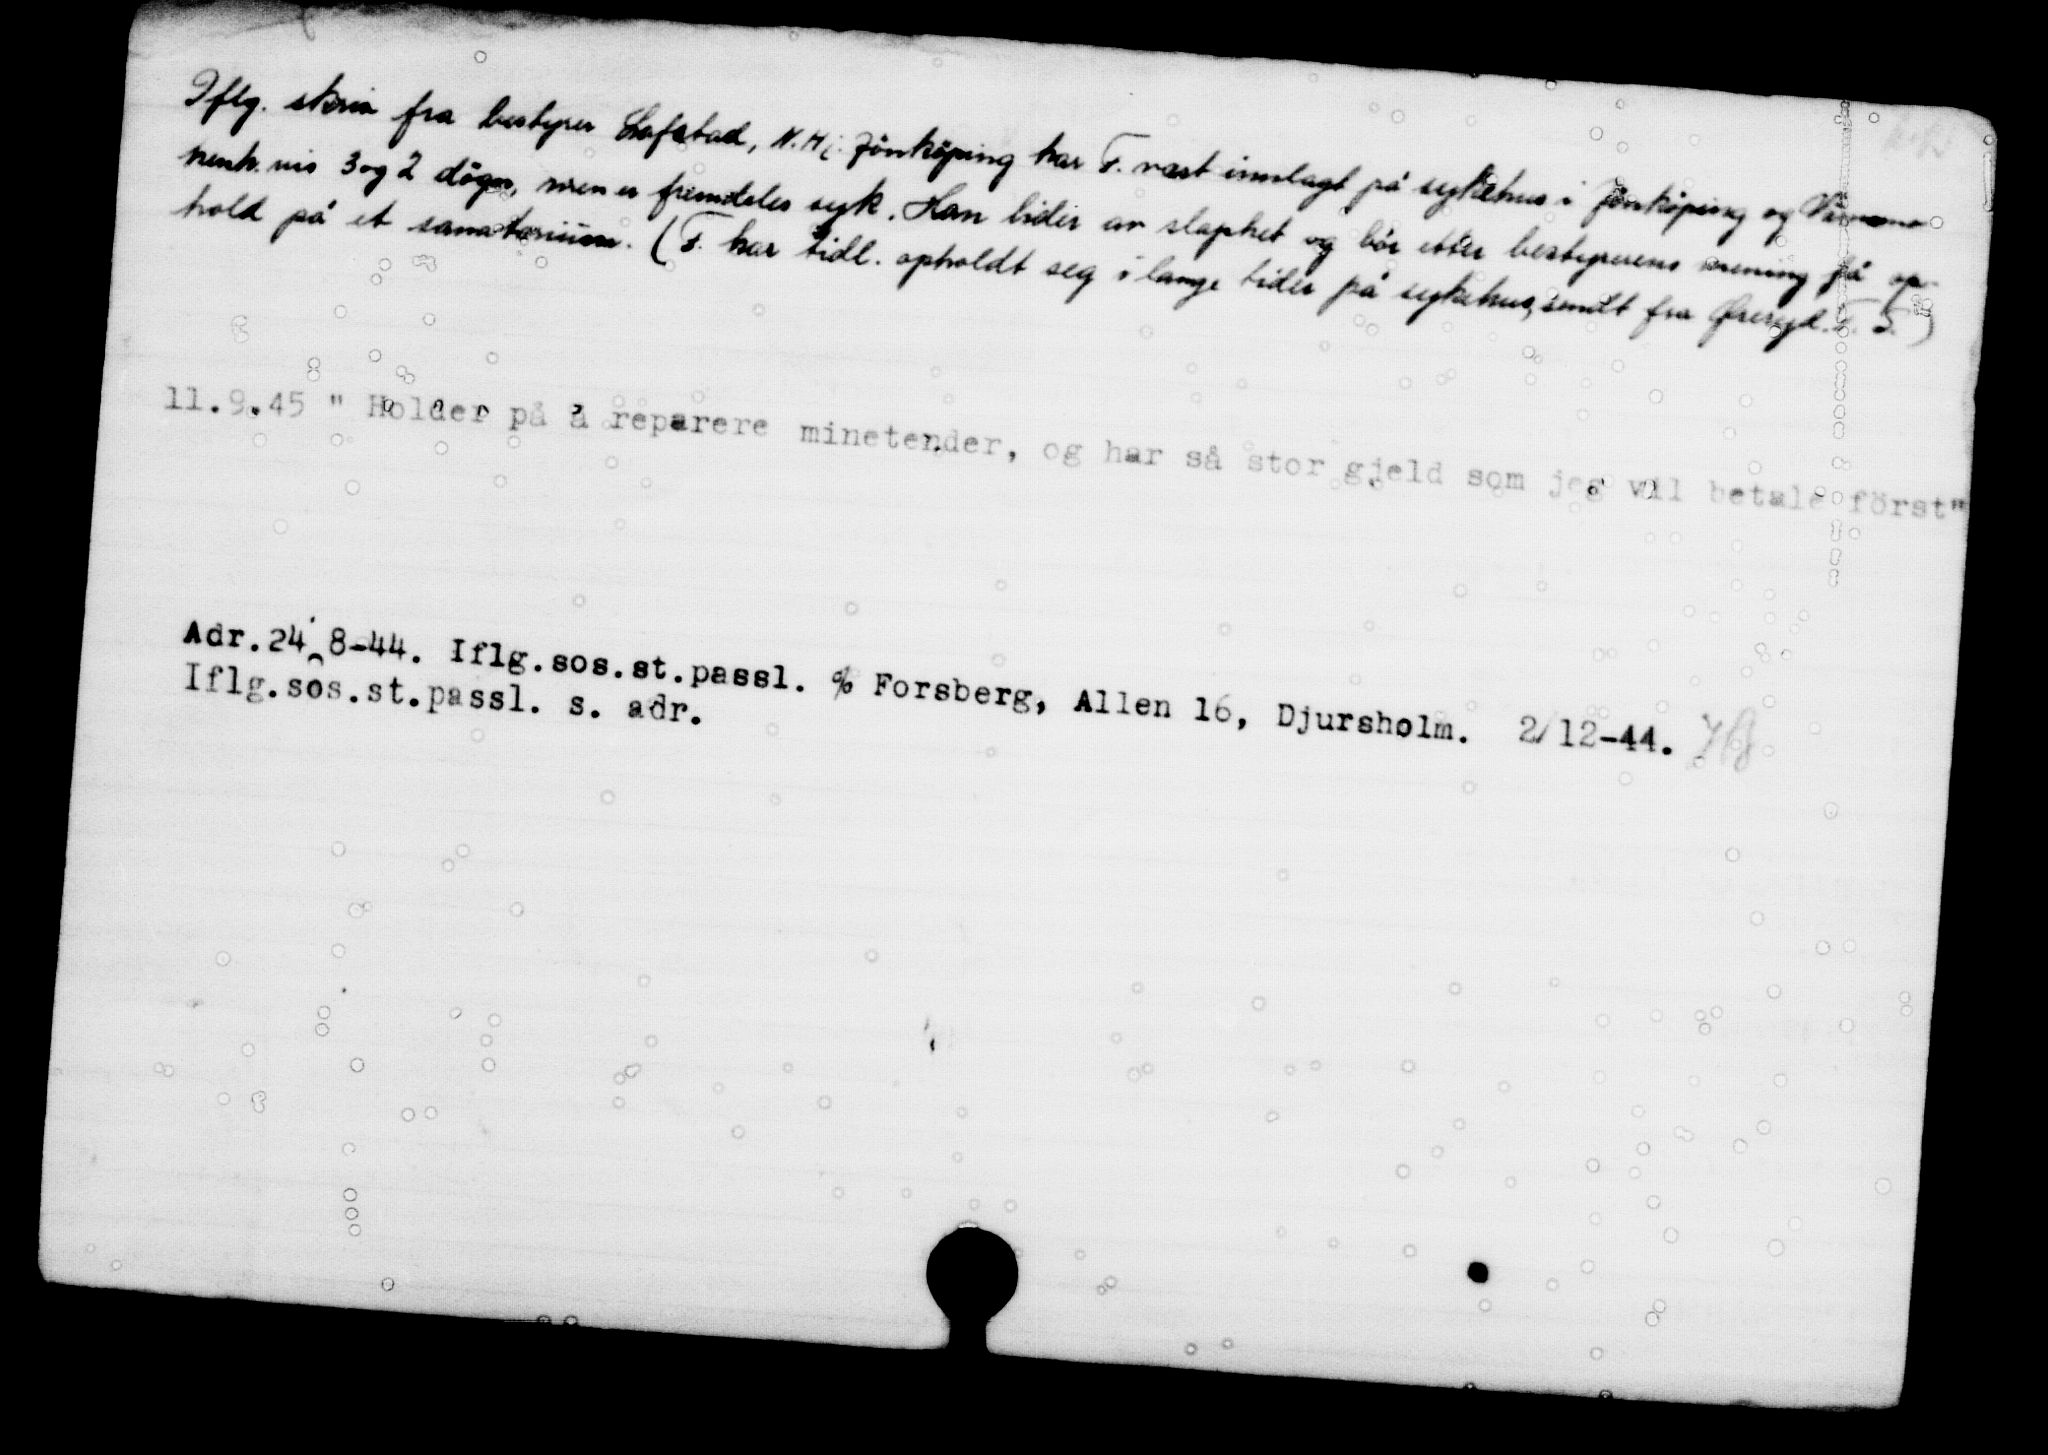 Iflg. skriv fra bestyrer Hafstad, N.H. i Jönköping har F. vært innlagt på sykehus i Jönköping og Värnamo
henh.vis 3 og 2 dögn, men er fremdeles syk. Han lider av slaphet og bör etter bestyrerens mening få op-
hold på et sanatorium. (F. har tidl. opholdt seg i lange tider på sykehus, sendt fra Öreryd. T. S.)
11.9.45 " Holder på å reparere minetender, og har så stor gjeld som jeg vil betale först"
Adr.24.8-44. Iflg.sos.st.passl. % Forsberg, Allen 16, Djursholm. 2/12-44.
Iflg.sos.st.passl. s. adr.